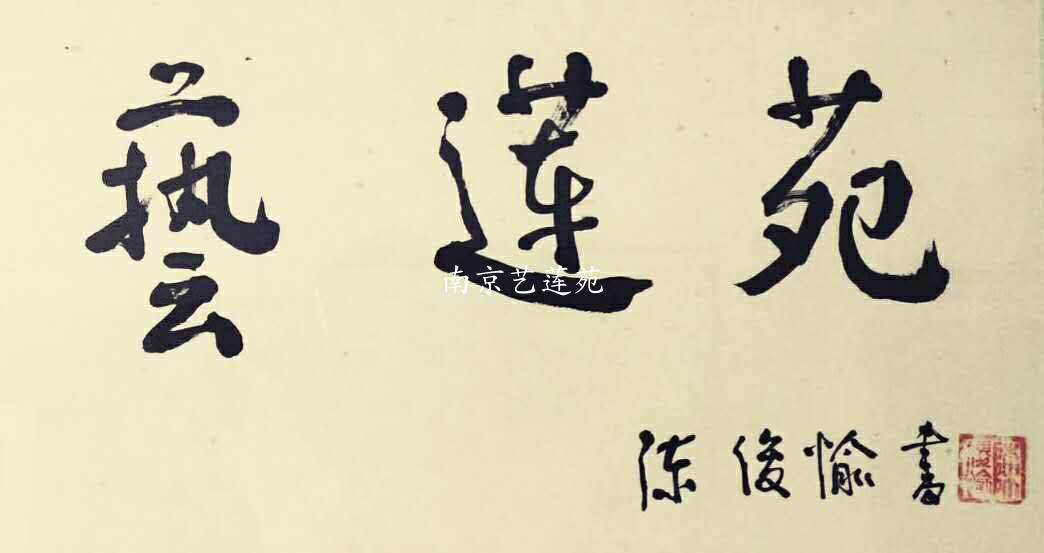 藝蓮苑
南京艺莲苑
陈俊愉書